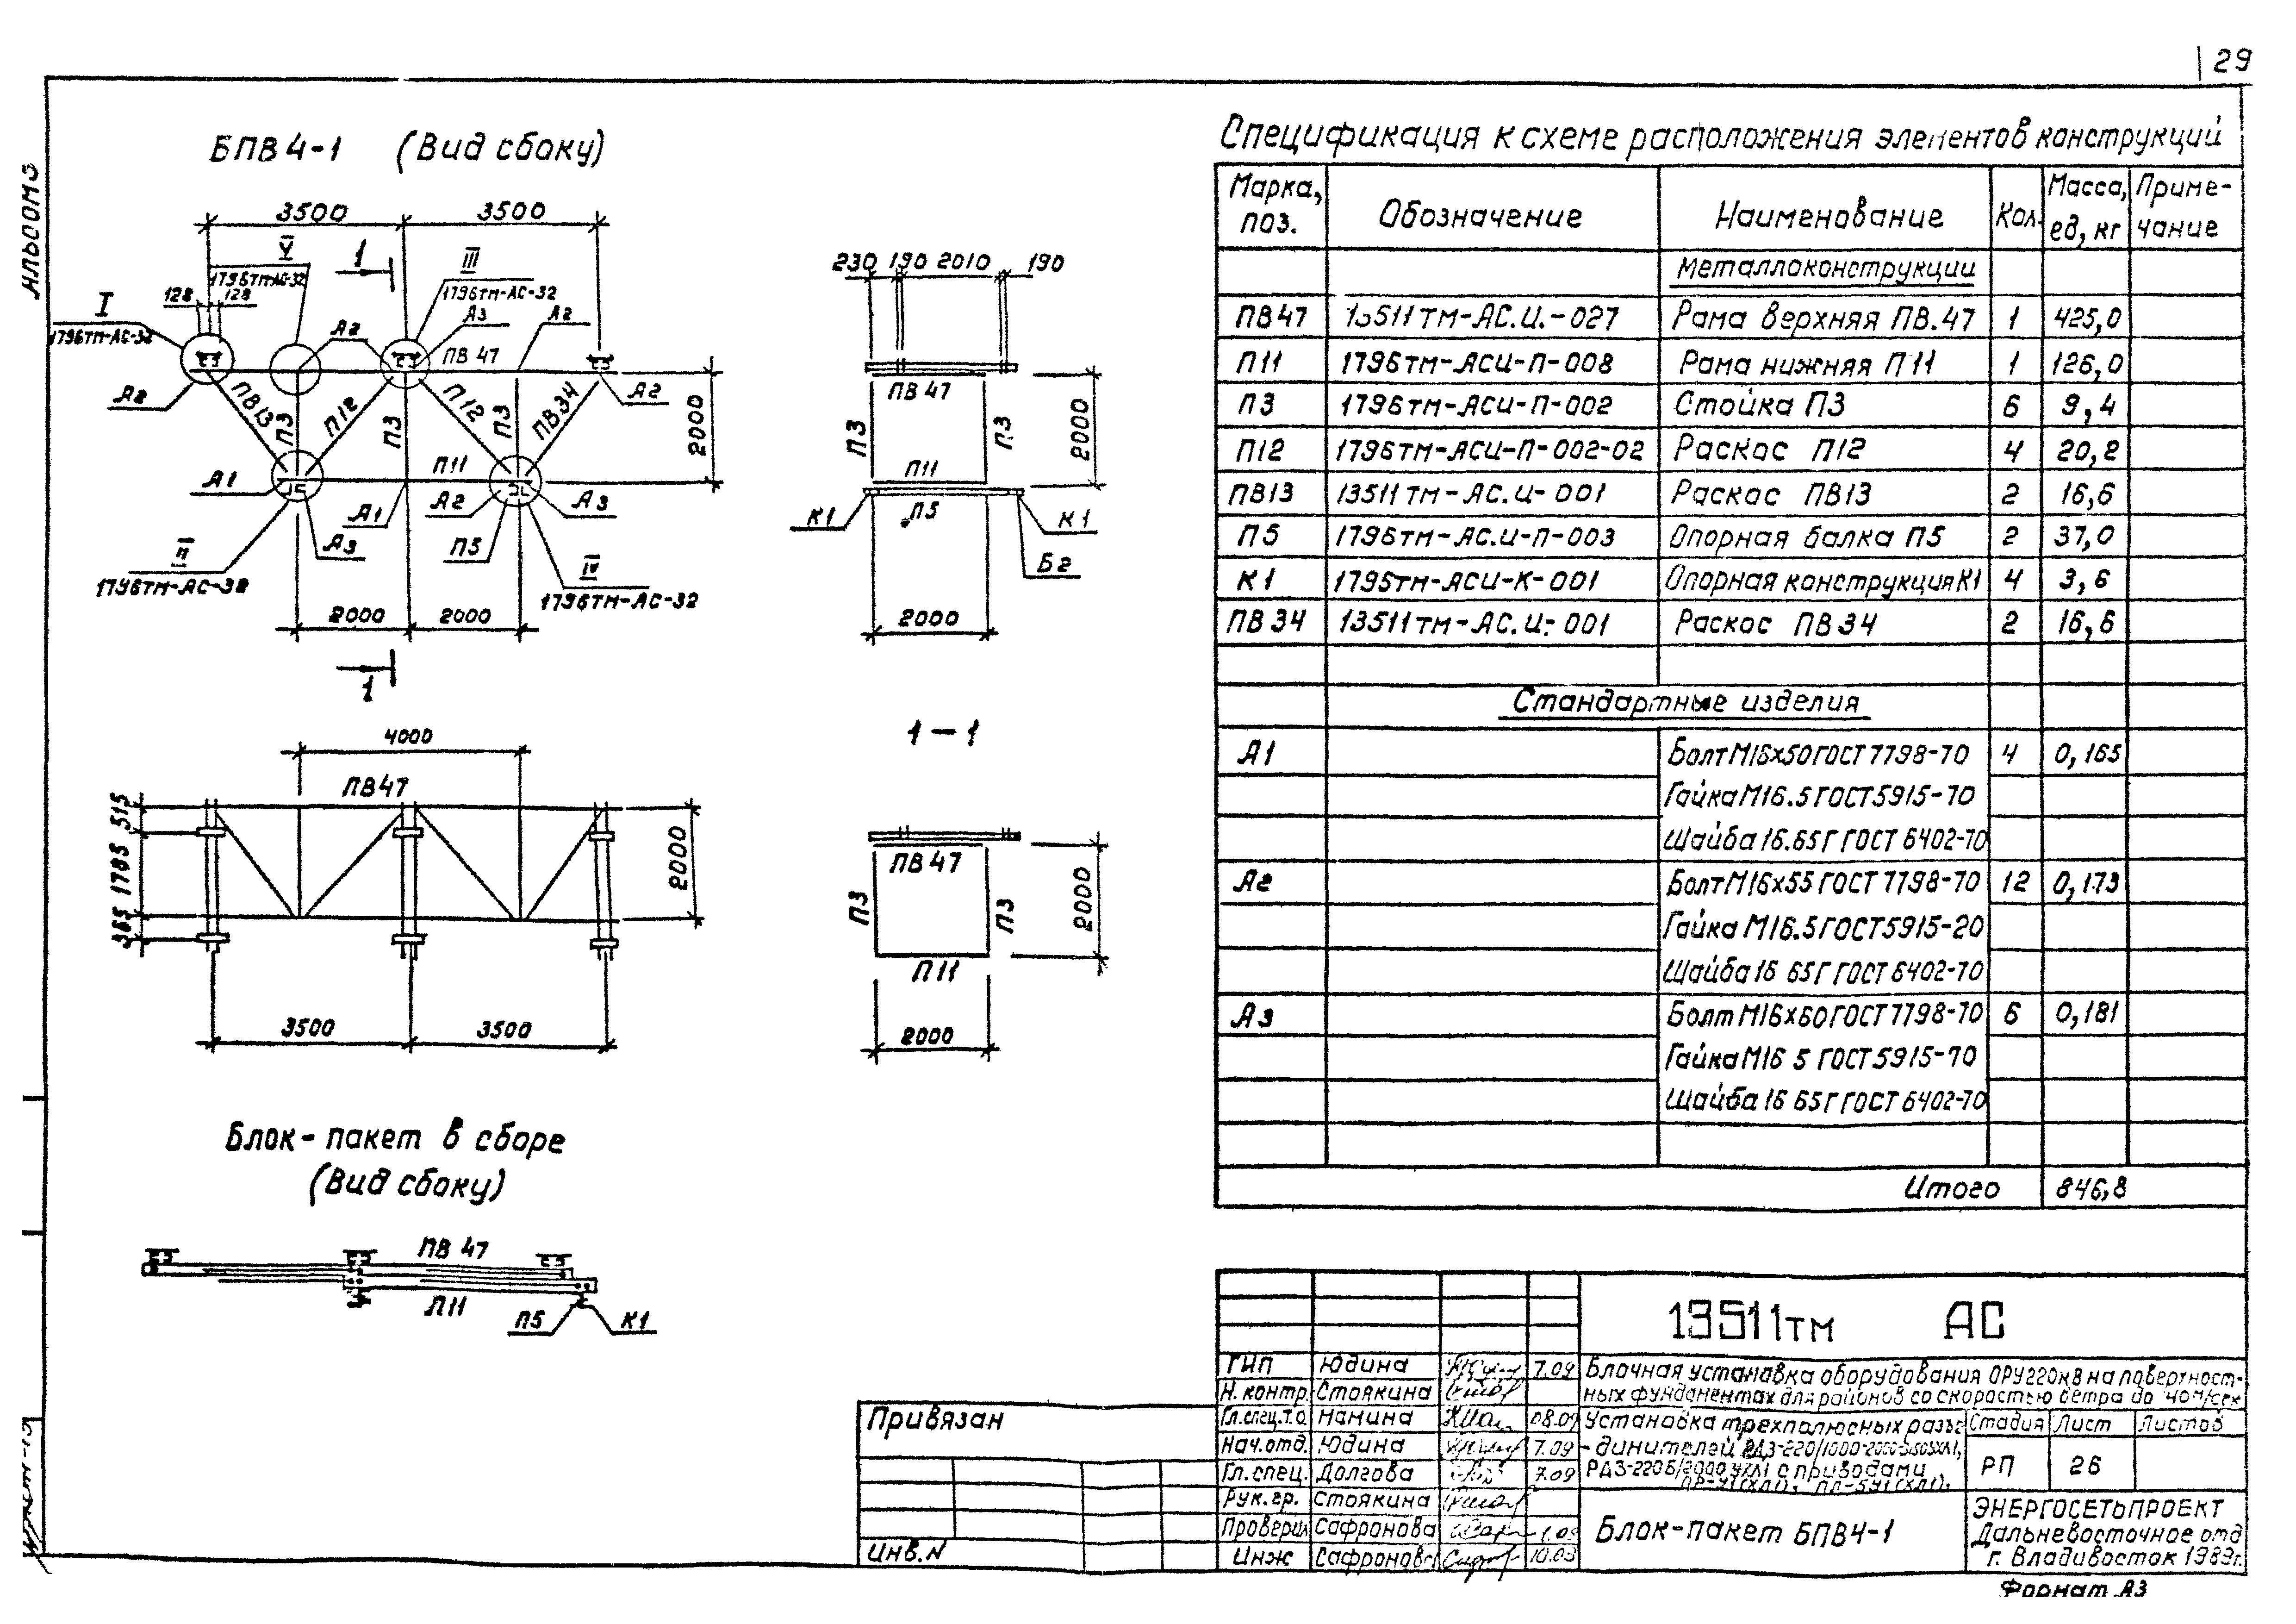 29
Альбом 3
БПВ4-1 (Вид сбоку)
3500 3500
V
1796тм-АС-32
1
III
1796тм-АС-32
I
1796тм-АС-32
128 128
А2 А3 А2
ПВ 47
А2 ПВ13 П3 П12 П3 П12 П3 ПВ34 А2
2000
А1 П11
А1 А2 А3
А3 П5
II
1796тм-АС-32
IV
1796тм-АС-32
2000 2000
1
230 190 2010 190
ПВ 47
П3 П3
2000
П11
К1 П5 К1
Б2
2000
4000
ПВ47
515
1785
365
2000
3500 3500
1-1
ПВ 47
П3 П3
2000
П11
2000
Блок-пакет в сборе
(Вид сбоку)
ПВ 47
П11
П5 К1
Спецификация к схеме расположения элементов конструкций
Марка, поз. Обозначение Наименование Кол. Масса, ед, кг Приме-чание
Металлоконструкции
ПВ47 13511тм-АС.И.-027 Рама верхняя ПВ.47 1 425,0
П11 1796тм-АСИ-П-008 Рама нижняя П11 1 126,0
П3 1796тм-АСИ-П-002 Стойка П3 6 9,4
П12 1796тм-АСИ-П-002-02 Раскос П12 4 20,2
ПВ13 13511тм-АС.И-001 Раскос ПВ13 2 16,6
П5 1796тм-АС.И-П-003 Опорная балка П5 2 37,0
К1 1795тм-АСИ-К-001 Опорная конструкция К1 4 3,6
ПВ 34 13511тм-АС.И-001 Раскос ПВ34 2 16,6
Стандартные изделия
А1 Болт М16х50 ГОСТ 7798-70 4 0,165
Гайка М16.5 ГОСТ 5915-70
Шайба 16.65Г ГОСТ 6402-70
А2 Болт М16х55 ГОСТ 7798-70 12 0,173
Гайка М16.5 ГОСТ 5915-20
Шайба 16 65Г ГОСТ 6402-70
А3 Болт М16х60 ГОСТ 7798-70 6 0,181
Гайка М16 5 ГОСТ 5915-70
Шайба 16 65Г ГОСТ 6402-70
Итого 846,8
13511тм АС
ГИП Юдина 7.09
Н. контр. Стоякина
Гл.спец.т.о. Намина 08.09
Нач.отд. Юдина 7.09
Гл.спец. Долгова 7.09
Рук.гр. Стоякина
Проверил Сафронова
Инж Сафронова 10.09
Блочная установка оборудования ОРУ220кВ на поверхност-
ных фундаментах для районов со скоростью ветра до 40м/сек
Установка трехполюсных разъе
-динителей
РДЗ-220Б/2000 УХЛ1 с приводами
Стадия Лист Листов
РП 26
Блок-пакет БПВ4-1
ЭНЕРГОСЕТЬПРОЕКТ
Дальневосточное отд
г. Владивосток 1989г.
Привязан
Инв.N
Формат А3